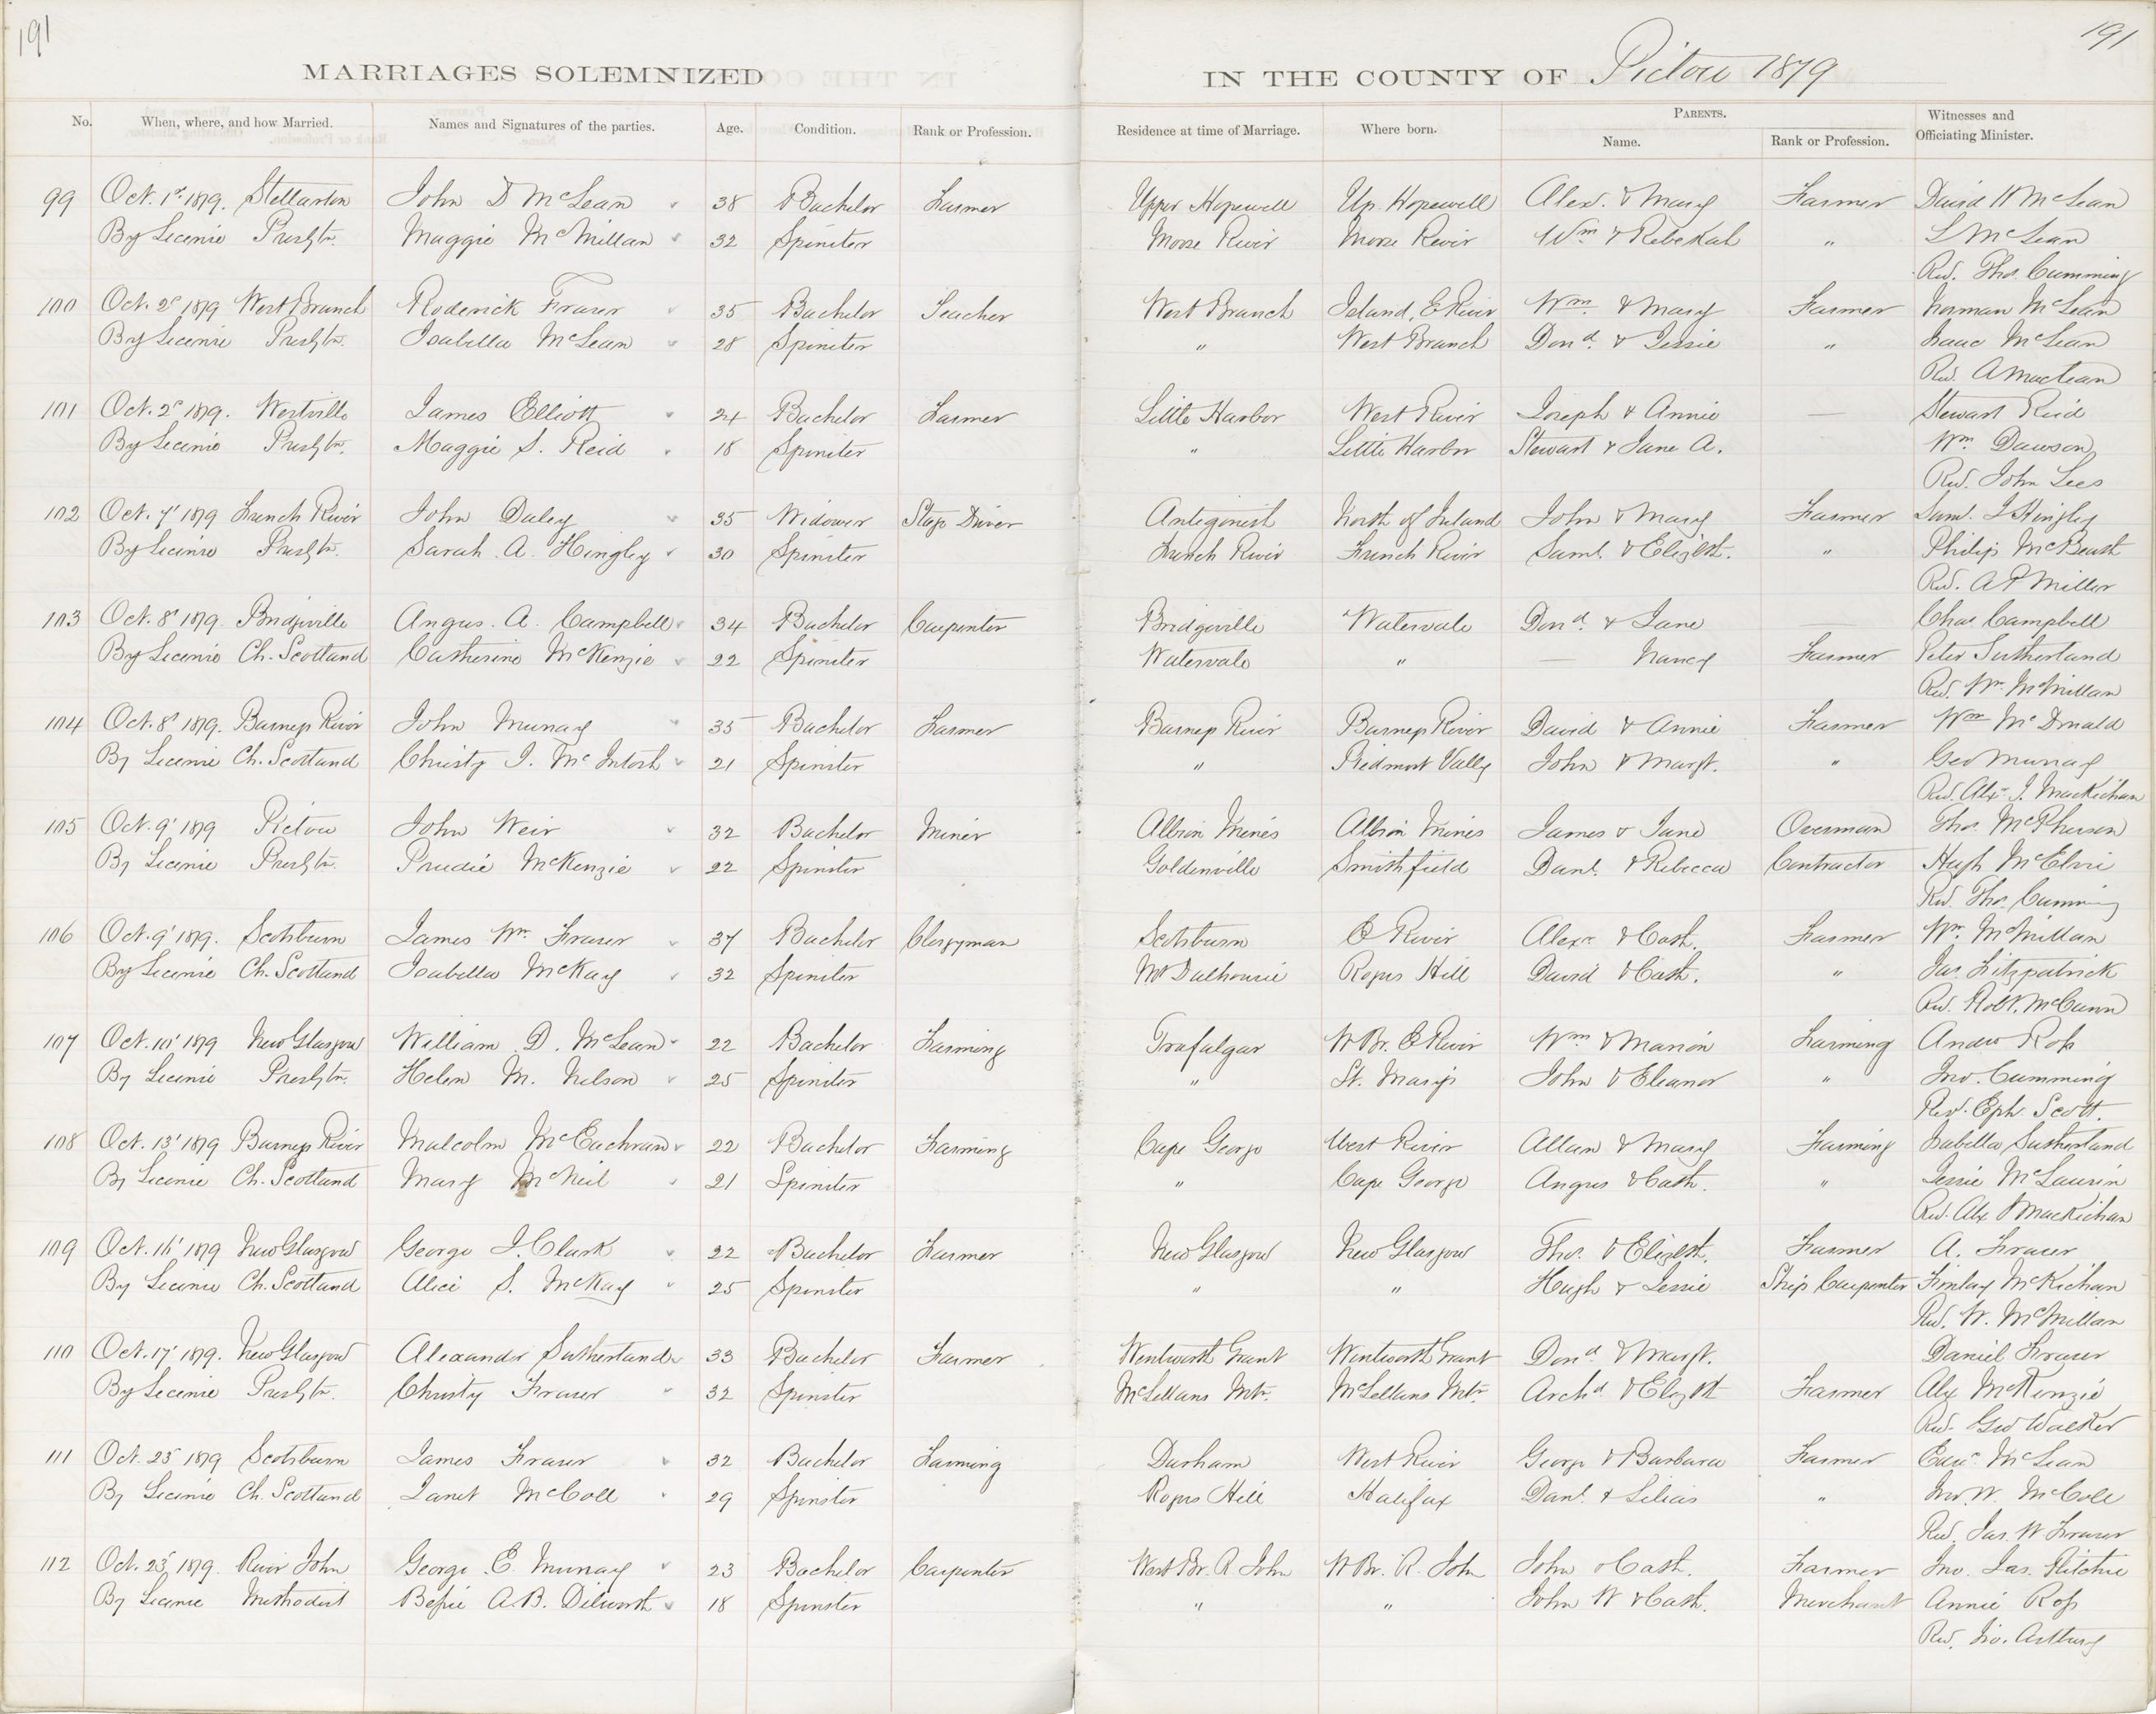 191
191
MARRIAGES SOLEMNIZED
IN THE COUNTY OF Pictou 1879
No. When, where, and how Married. Names and Signatures of the parties. Age. Condition. Rank or Profession. Residence at time of Marriage. Where born. PARENTS. Name. Rank or Profession. Witnesses and Officiating Minister.
99 Oct. 1st 1879. Stellarton John D McLean 38 Bachelor Farmer Upper Hopewell Up. Hopewell Alex. & Mary Farmer David H McLean
By Licence Presbtn. Maggie McMillan 32 Spinster Moose River Moose River Wm & Rebekah " L McLean
Rev. Thos. Cumming
100 Oct. 2d 1879 West Branch Roderick Fraser 35 Bachelor Teacher West Branch Island, E River Wm. & Mary Farmer Norman McLean
By Licence Presbtn. Isabella McLean 28 Spinster " West Branch Dond. & Jessie " Isaac McLean
Rev. A Maclean
101 Oct. 2d 1879. Westville James Elliott 24 Bachelor Farmer Little Harbor West River Joseph & Annie — Stewart Reid
By Licence Presbtn. Maggie S. Reid 18 Spinster " Little Harbor Stewart & Jane A. Wm Dawson
Rev. John Lees
102 Oct. 7' 1879 French River John Daley 35 Widower Stage Driver Antigonish North of Ireland John & Mary Farmer Saml. J Hingley
By Licence Presbtn. Sarah. A. Hingley 30 Spinster French River French River Saml. & Elizbth. " Philip McBeath
Rev. A P Miller
103 Oct. 8' 1879. Bridgeville Angus. A. Campbell 34 Bachelor Carpenter Bridgeville Watervale Dond. & Jane — Chas Campbell
By Licence Ch. Scotland Catherine McKenzie 22 Spinster Watervale " — Nancy Farmer Peter Sutherland
Rev. Wm. McMillan
104 Oct. 8' 1879. Barneys River John Murray 35 Bachelor Farmer Barneys River Barneys River David & Annie Farmer Wm McDonald
By Licence Ch. Scotland Christy J. McIntosh 21 Spinster " Piedmont Vally John & Margt. " Geo Murray
Rev. Alxr J. MacKichan
105 Oct. 9' 1879 Pictou John Weir 32 Bachelor Miner Albion Mines Albion Mines James & Jane Overman Thos. McPherson
By Licence Presbtn. Prudie McKenzie 22 Spinster Goldenville Smithfield Danl. & Rebecca Contractor Hugh McElvie
Rev. Thos. Cumming
106 Oct. 9' 1879. Scotsburn James Wm. Fraser 37 Bachelor Clergyman Scotsburn E River Alexr & Cath. Farmer Wm. McMillan
By Licence Ch. Scotland Isabella McKay 32 Spinster Mt Dalhousie Rogers Hill David & Cath. " Jas. Fitzpatrick
Rev. Robt. McCunn
107 Oct. 10' 1879 New Glasgow William D. McLean 22 Bachelor Farming Trafalgar W Br. E River Wm & Marion Farming Andw Ross
By Licence Presbtn. Helen M. Nelson 25 Spinster " St. Mary's John & Eleanor " Jno. Cumming
Rev. Eph. Scott.
108 Oct. 13' 1879 Barneys River Malcolm McEachran 22 Bachelor Farming Cape George West River Allan & Mary Farming Isabella Sutherland
By Licence Ch. Scotland Mary McNeil 21 Spinster " Cape George Angus & Cath. " Jessie McLaurin
Rev. Alx J MacKichan
109 Oct. 14' 1879 New Glasgow George J. Clark 22 Bachelor Farmer New Glasgow New Glasgow Thos. & Elizbth. Farmer A. Fraser
By Licence Ch. Scotland Alice S. McKay 25 Spinster " " Hugh & Jessie Ship Carpenter Finlay McKichan
Rev. W. McMillan
110 Oct. 17' 1879. New Glasgow Alexander Sutherland 33 Bachelor Farmer Wentworth Grant Wentworth Grant Dond & Margt. Daniel Fraser
By Licence Presbtn. Christy Fraser 32 Spinster McLellans Mtn. McLellans Mtn. Archd & Elizbth Farmer Alx McKenzie
Rev. Geo Walker
111 Oct. 23 1879 Scotsburn James Fraser 32 Bachelor Farming Durham West River George & Barbara Farmer McLean
By Licence Ch. Scotland Janet McColl 29 Spinster Rogers Hill Halifax Danl. & Lilias " Jno. W. McColl
Rev. Jas. W Fraser
112 Oct. 23 1879. River John George E. Murray 23 Bachelor Carpenter West Br. R. John W Br. R. John John & Cath. Farmer Jno. Jas. Ritchie
By Licence Methodist Bessie A.B. Dilworth 18 Spinster " " John W & Cath. Merchant Annie Ross
Rev. Jno. Astbury